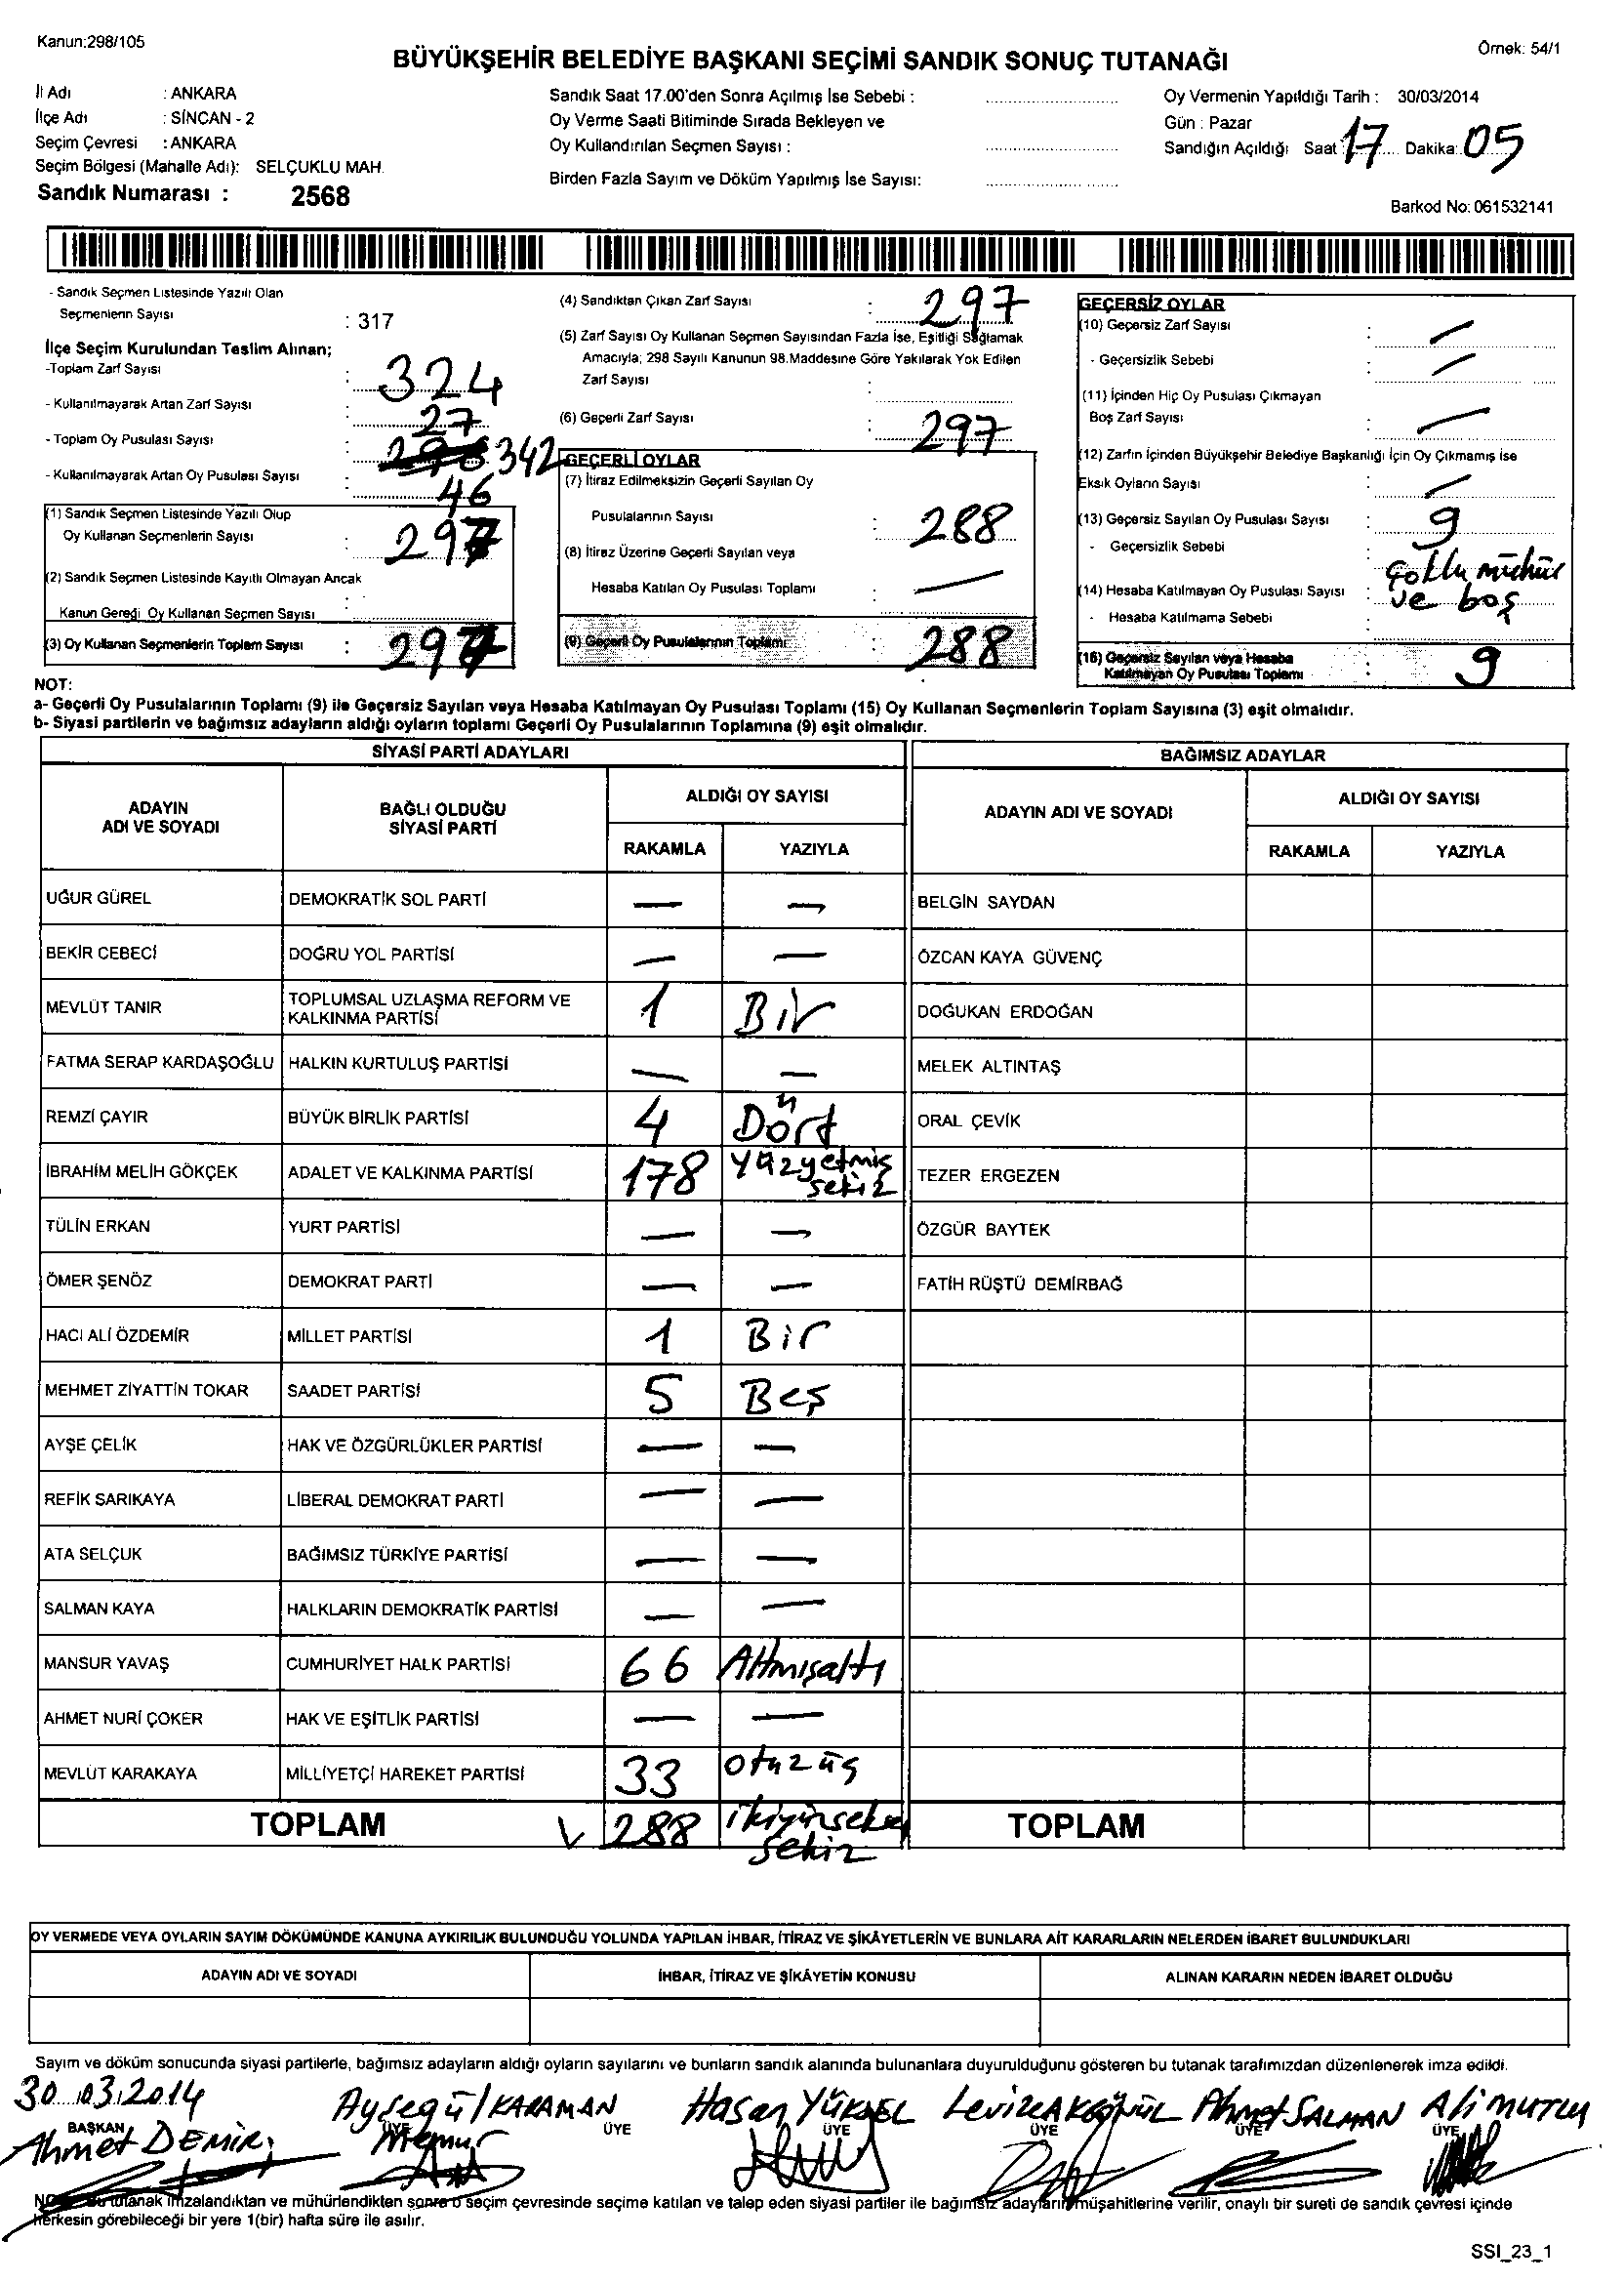 Kanun:298/105
Örnek: 54/1
BÜYÜKŞEHİR BELEDİYE BAŞKANI SEÇİMİ SANDIK SONUÇ TUTANAĞI
İl Adı : ANKARA
İlçe Adı : SİNCAN - 2
Seçim Çevresi : ANKARA
Seçim Bölgesi (Mahalle Adı): SELÇUKLU MAH.
Sandık Numarası : 2568
Sandık Saat 17.00'den Sonra Açılmış İse Sebebi :
Oy Verme Saati Bitiminde Sırada Bekleyen ve
Oy Kullandırılan Seçmen Sayısı :
Birden Fazla Sayım ve Döküm Yapılmış İse Sayısı:
Oy Vermenin Yapıldığı Tarih : 30/03/2014
Gün : Pazar
Sandığın Açıldığı Saat : 17 Dakika: 05
Barkod No: 061532141
- Sandık Seçmen Listesinde Yazılı Olan
Seçmenlerin Sayısı : 317
İlçe Seçim Kurulundan Teslim Alınan;
-Toplam Zarf Sayısı : 324
- Kullanılmayarak Artan Zarf Sayısı : 27
- Toplam Oy Pusulası Sayısı : 342
- Kullanılmayarak Artan Oy Pusulası Sayısı : 46
(1) Sandık Seçmen Listesinde Yazılı Olup
Oy Kullanan Seçmenlerin Sayısı : 297
(2) Sandık Seçmen Listesinde Kayıtlı Olmayan Ancak
Kanun Gereği Oy Kullanan Seçmen Sayısı :
(3) Oy Kullanan Seçmenlerin Toplam Sayısı : 297
(4) Sandıktan Çıkan Zarf Sayısı : 297
(5) Zarf Sayısı Oy Kullanan Seçmen Sayısından Fazla İse, Eşitliği Sağlamak
Amacıyla; 298 Sayılı Kanunun 98.Maddesine Göre Yakılarak Yok Edilen
Zarf Sayısı :
(6) Geçerli Zarf Sayısı : 297
GEÇERLİ OYLAR
(7) İtiraz Edilmeksizin Geçerli Sayılan Oy
Pusulalarının Sayısı : 288
(8) İtiraz Üzerine Geçerli Sayılan veya
Hesaba Katılan Oy Pusulası Toplamı : —
(9) Geçerli Oy Pusulalarının Toplamı : 288
GEÇERSİZ OYLAR
(10) Geçersiz Zarf Sayısı : —
- Geçersizlik Sebebi : —
(11) İçinden Hiç Oy Pusulası Çıkmayan
Boş Zarf Sayısı : —
(12) Zarfın İçinden Büyükşehir Belediye Başkanlığı İçin Oy Çıkmamış ise
Eksik Oyların Sayısı : —
(13) Geçersiz Sayılan Oy Pusulası Sayısı : 9
- Geçersizlik Sebebi : Çoklu mühür
(14) Hesaba Katılmayan Oy Pusulası Sayısı : ve boş
- Hesaba Katılmama Sebebi :
(15) Geçersiz Sayılan veya Hesaba
Katılmayan Oy Pusulası Toplamı : 9
NOT:
a- Geçerli Oy Pusulalarının Toplamı (9) ile Geçersiz Sayılan veya Hesaba Katılmayan Oy Pusulası Toplamı (15) Oy Kullanan Seçmenlerin Toplam Sayısına (3) eşit olmalıdır.
b- Siyasi partilerin ve bağımsız adayların aldığı oyların toplamı Geçerli Oy Pusulalarının Toplamına (9) eşit olmalıdır.
SİYASİ PARTİ ADAYLARI
BAĞIMSIZ ADAYLAR
ADAYIN ADI VE SOYADI
BAĞLI OLDUĞU SİYASİ PARTİ
ALDIĞI OY SAYISI
RAKAMLA YAZIYLA
ADAYIN ADI VE SOYADI
ALDIĞI OY SAYISI
RAKAMLA YAZIYLA
UĞUR GÜREL DEMOKRATİK SOL PARTİ — — BELGİN SAYDAN
BEKİR CEBECİ DOĞRU YOL PARTİSİ — — ÖZCAN KAYA GÜVENÇ
MEVLÜT TANIR TOPLUMSAL UZLAŞMA REFORM VE KALKINMA PARTİSİ 1 Bir DOĞUKAN ERDOĞAN
FATMA SERAP KARDAŞOĞLU HALKIN KURTULUŞ PARTİSİ — — MELEK ALTINTAŞ
REMZİ ÇAYIR BÜYÜK BİRLİK PARTİSİ 4 Dört ORAL ÇEVİK
İBRAHİM MELİH GÖKÇEK ADALET VE KALKINMA PARTİSİ 178 Yüzyetmiş sekiz TEZER ERGEZEN
TÜLİN ERKAN YURT PARTİSİ — — ÖZGÜR BAYTEK
ÖMER ŞENÖZ DEMOKRAT PARTİ — — FATİH RÜŞTÜ DEMİRBAĞ
HACI ALİ ÖZDEMİR MİLLET PARTİSİ 1 Bir
MEHMET ZİYATTİN TOKAR SAADET PARTİSİ 5 Beş
AYŞE ÇELİK HAK VE ÖZGÜRLÜKLER PARTİSİ — —
REFİK SARIKAYA LİBERAL DEMOKRAT PARTİ — —
ATA SELÇUK BAĞIMSIZ TÜRKİYE PARTİSİ — —
SALMAN KAYA HALKLARIN DEMOKRATİK PARTİSİ — —
MANSUR YAVAŞ CUMHURİYET HALK PARTİSİ 66 Altmışaltı
AHMET NURİ ÇOKER HAK VE EŞİTLİK PARTİSİ — —
MEVLÜT KARAKAYA MİLLİYETÇİ HAREKET PARTİSİ 33 Otuzüç
TOPLAM 288 sekiz TOPLAM
OY VERMEDE VEYA OYLARIN SAYIM DÖKÜMÜNDE KANUNA AYKIRILIK BULUNDUĞU YOLUNDA YAPILAN İHBAR, İTİRAZ VE ŞİKÂYETLERİN VE BUNLARA AİT KARARLARIN NELERDEN İBARET BULUNDUKLARI
ADAYIN ADI VE SOYADI İHBAR, İTİRAZ VE ŞİKÂYETİN KONUSU ALINAN KARARIN NEDEN İBARET OLDUĞU
Sayım ve döküm sonucunda siyasi partilerle, bağımsız adayların aldığı oyların sayılarını ve bunların sandık alanında bulunanlara duyurulduğunu gösteren bu tutanak tarafımızdan düzenlenerek imza edildi.
30.03.2014 Ayşegül KARAMAN Hasan YÜKSEL AKGÖNÜL Ahmet SALMAN Ali MUTLU
BAŞKAN ÜYE ÜYE ÜYE ÜYE ÜYE ÜYE
Ahmet DEMİR Memur
NOT: Bu tutanak imzalandıktan ve mühürlendikten sonra o seçim çevresinde seçime katılan ve talep eden siyasi partiler ile bağımsız adayların müşahitlerine verilir, onaylı bir sureti de sandık çevresi içinde
herkesin görebileceği bir yere 1(bir) hafta süre ile asılır.
SSI_23_1